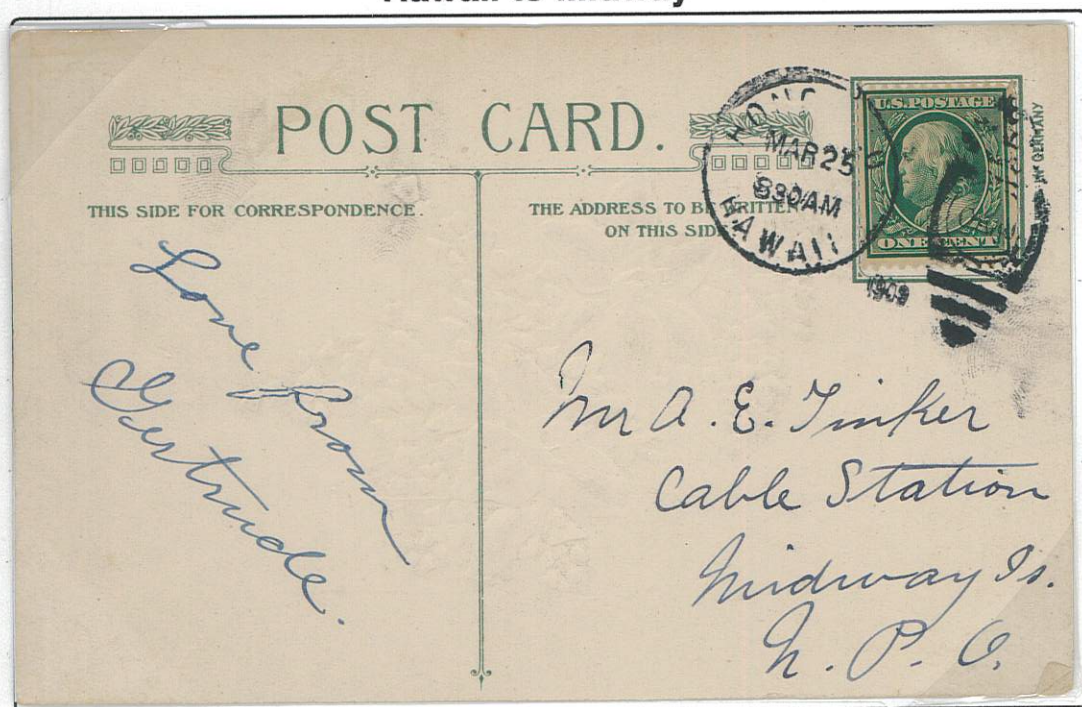 POST CARD.
THIS SIDE FOR CORRESPONDENCE.
THE ADDRESS TO BE WRITTEN
ON THIS SIDE
HONO
MAR 25
830AM
HAWAII
1909
U.S. POSTAGE
ONE CENT
GERMANY
Love from
Gertrude.
Mr A. E. Tinker
Cable Station
Midway Is.
N. P. O.